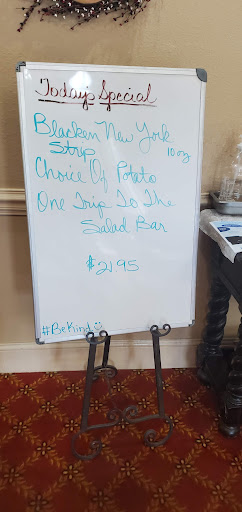 Today's Special
Blacken New York
Strip 10 oz
Choice Of Potato
One Trip To The
Salad Bar
$21.95
#BeKind☺